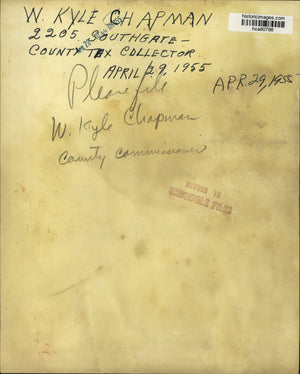 W. KYLE CHAPMAN
historicimages.com
hca60796
2205 SOUTHGATE -
COUNTY TAX COLLECTOR
APRIL 29, 1955
Please file
APR. 29, 1955
W. Kyle Chapman
County Commissioner
RETURN TO